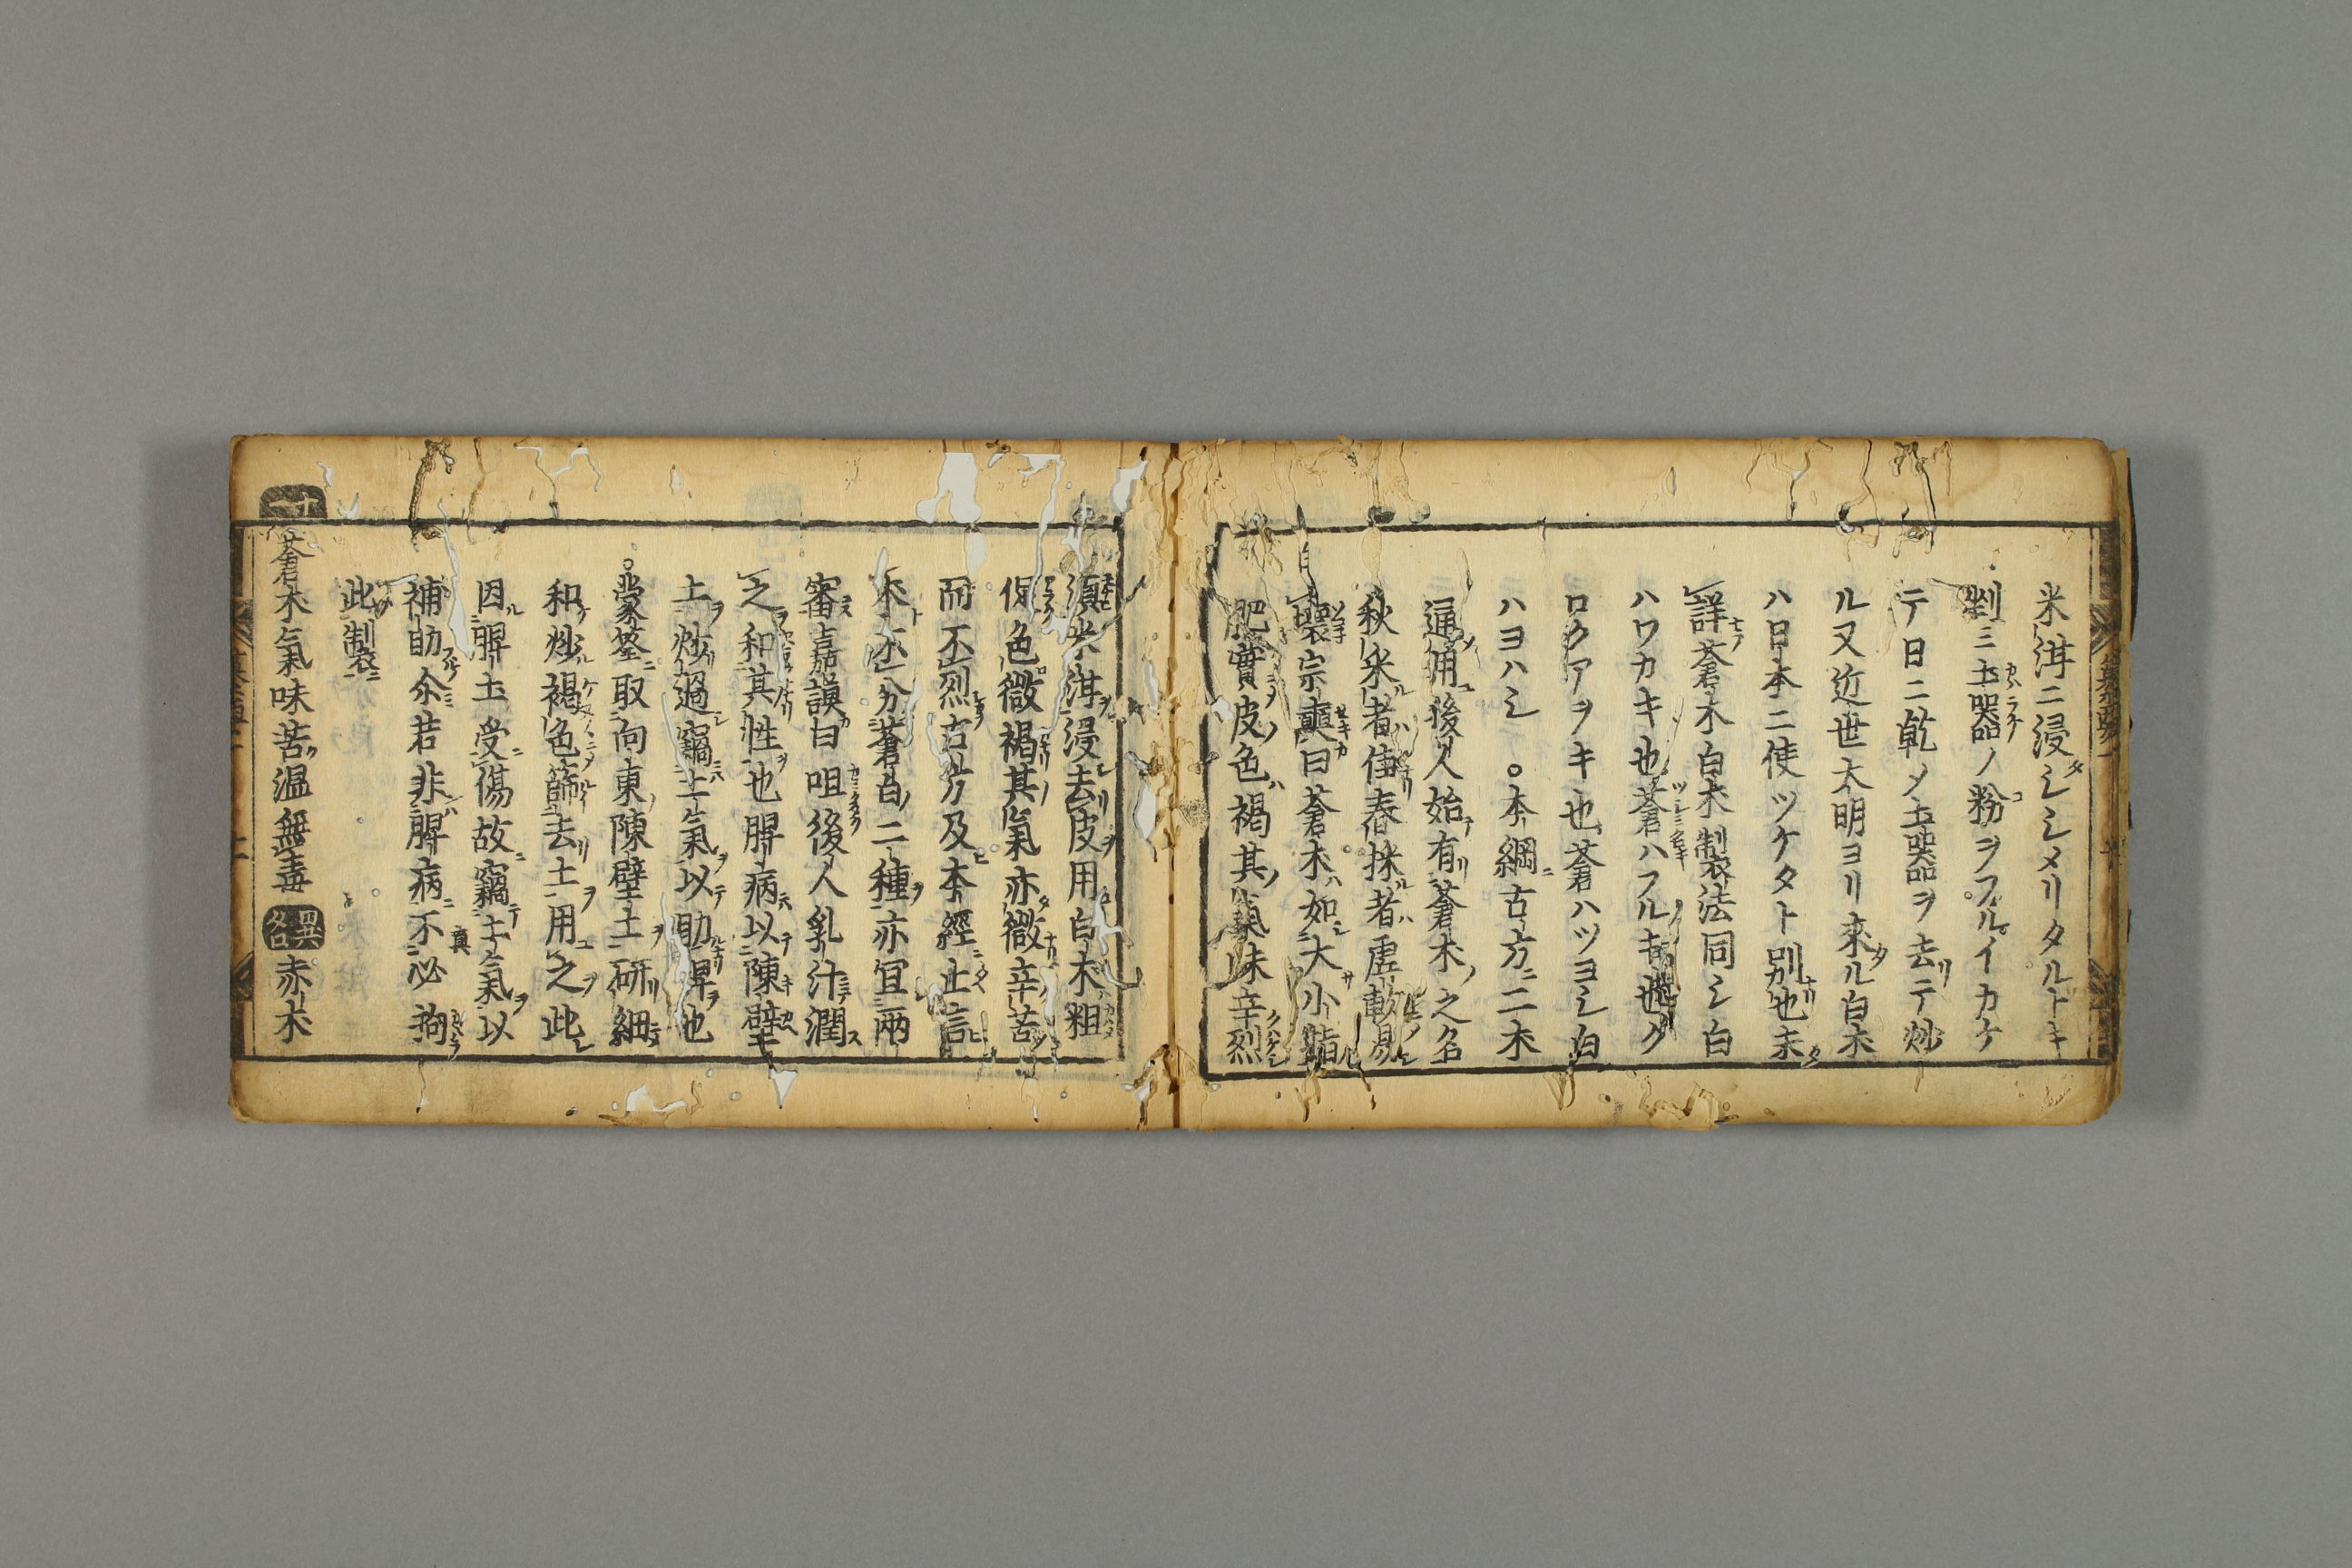 米泔ニ浸シシメリタルトキ
剉ミ土器ノ粉ヲフルイカケ
テ日ニ乾メ土器ヲ去リテ炒
ル又近世大明ヨリ来ル白朮
ハ日本ニ使ツケタト別也朮
詳蒼朮白朮制衣法同シ白
ハワカキ也蒼ハフルキ也ク
ロクアヲキ也蒼ハツヨシ白
ハヨハシ○本綱古方ニ二朮
通用後人始有蒼朮之名
秋采者佳春採者虚軟易
壊宗奭曰蒼朮如大小指
肥實皮色褐其氣味辛烈
須米泔浸去皮用白朮粗
促色微褐其氣亦微辛苦
而不烈古方及本經止言
朮不分蒼白二種亦宜兩
審嘉謨曰咀後人乳汁潤
之和其性也脾病以陳壁
土炒過竊土氣以助脾也
○蒙筌取向東陳壁土研細
和炒褐色篩去土用之此
因脾土受傷故竊土氣以
補助尒若非脾病不必拘
此制衣
蒼朮氣味苦温無毒 異名 赤朮